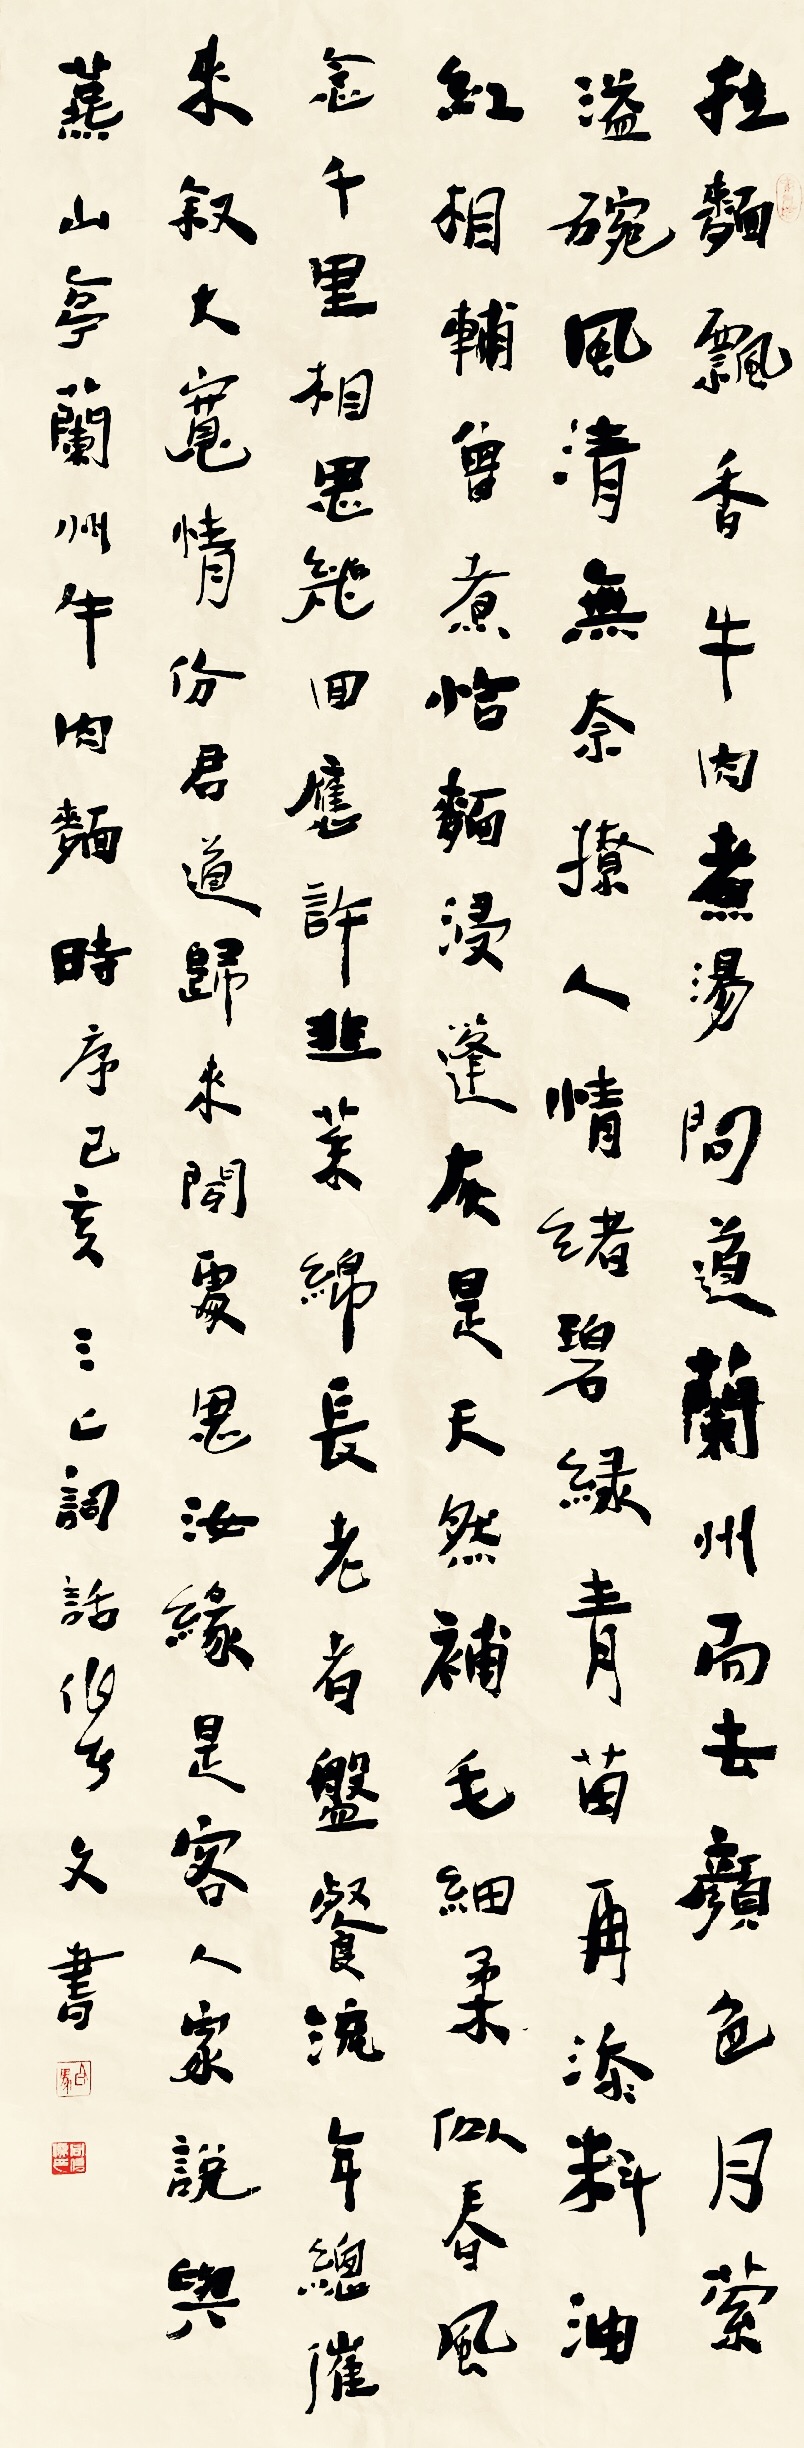 拉麵飄香牛肉煮湯問道蘭州而去顏色月縈
溢碗風清無奈撩人情緒碧綠青苗再添料油
紅相輔曾煮恰麵浸蓬灰是天然補毛細柔似春風
念千里相思幾回應許韭葉綿長老者盤餐流年總催
來叙大寬情份君道歸來閒處思汝緣是客人家說與
燕山亭蘭州牛肉麵時序己亥三亡詞話文書